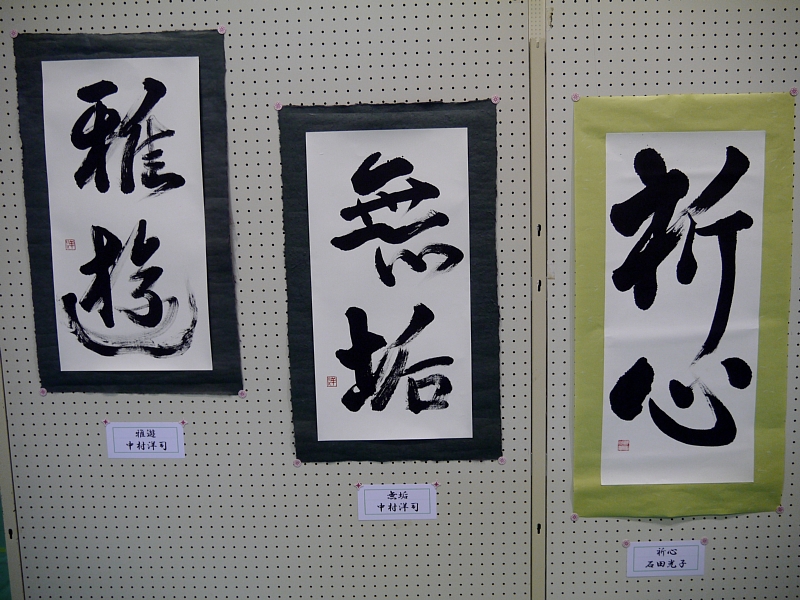 雅遊
雅遊
中村洋司
無垢
無垢
中村洋司
祈心
祈心
石田光子